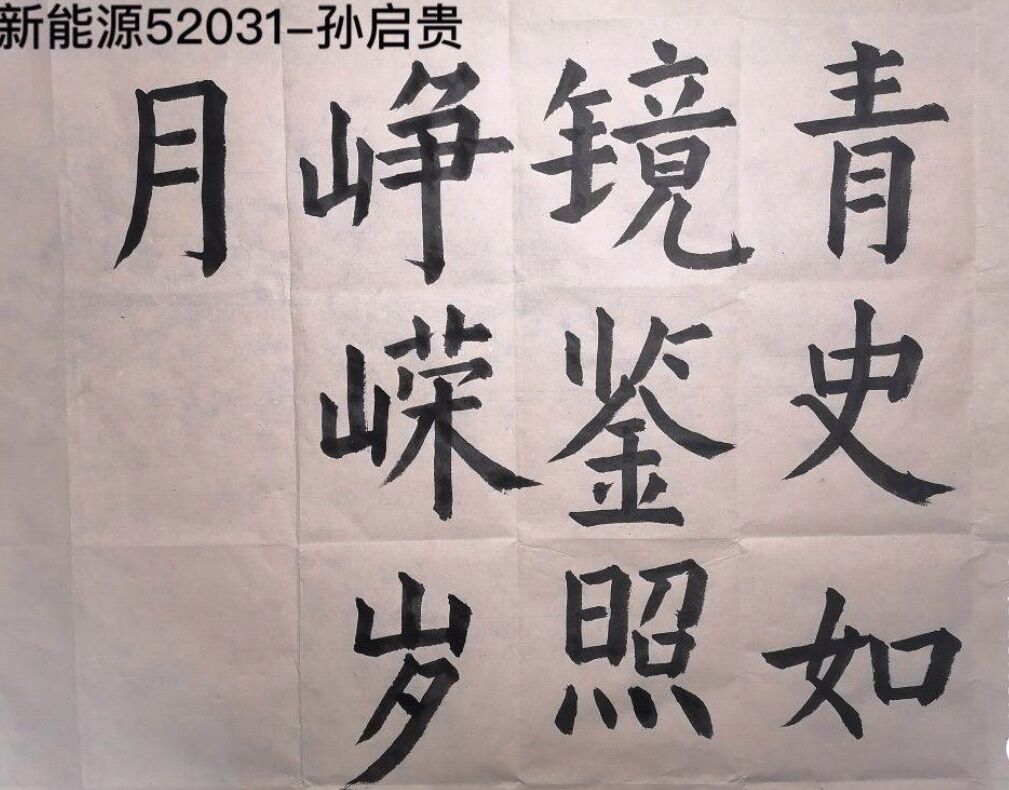 新能源52031-孙启贵
青史如
镜鉴照
峥嵘岁
月